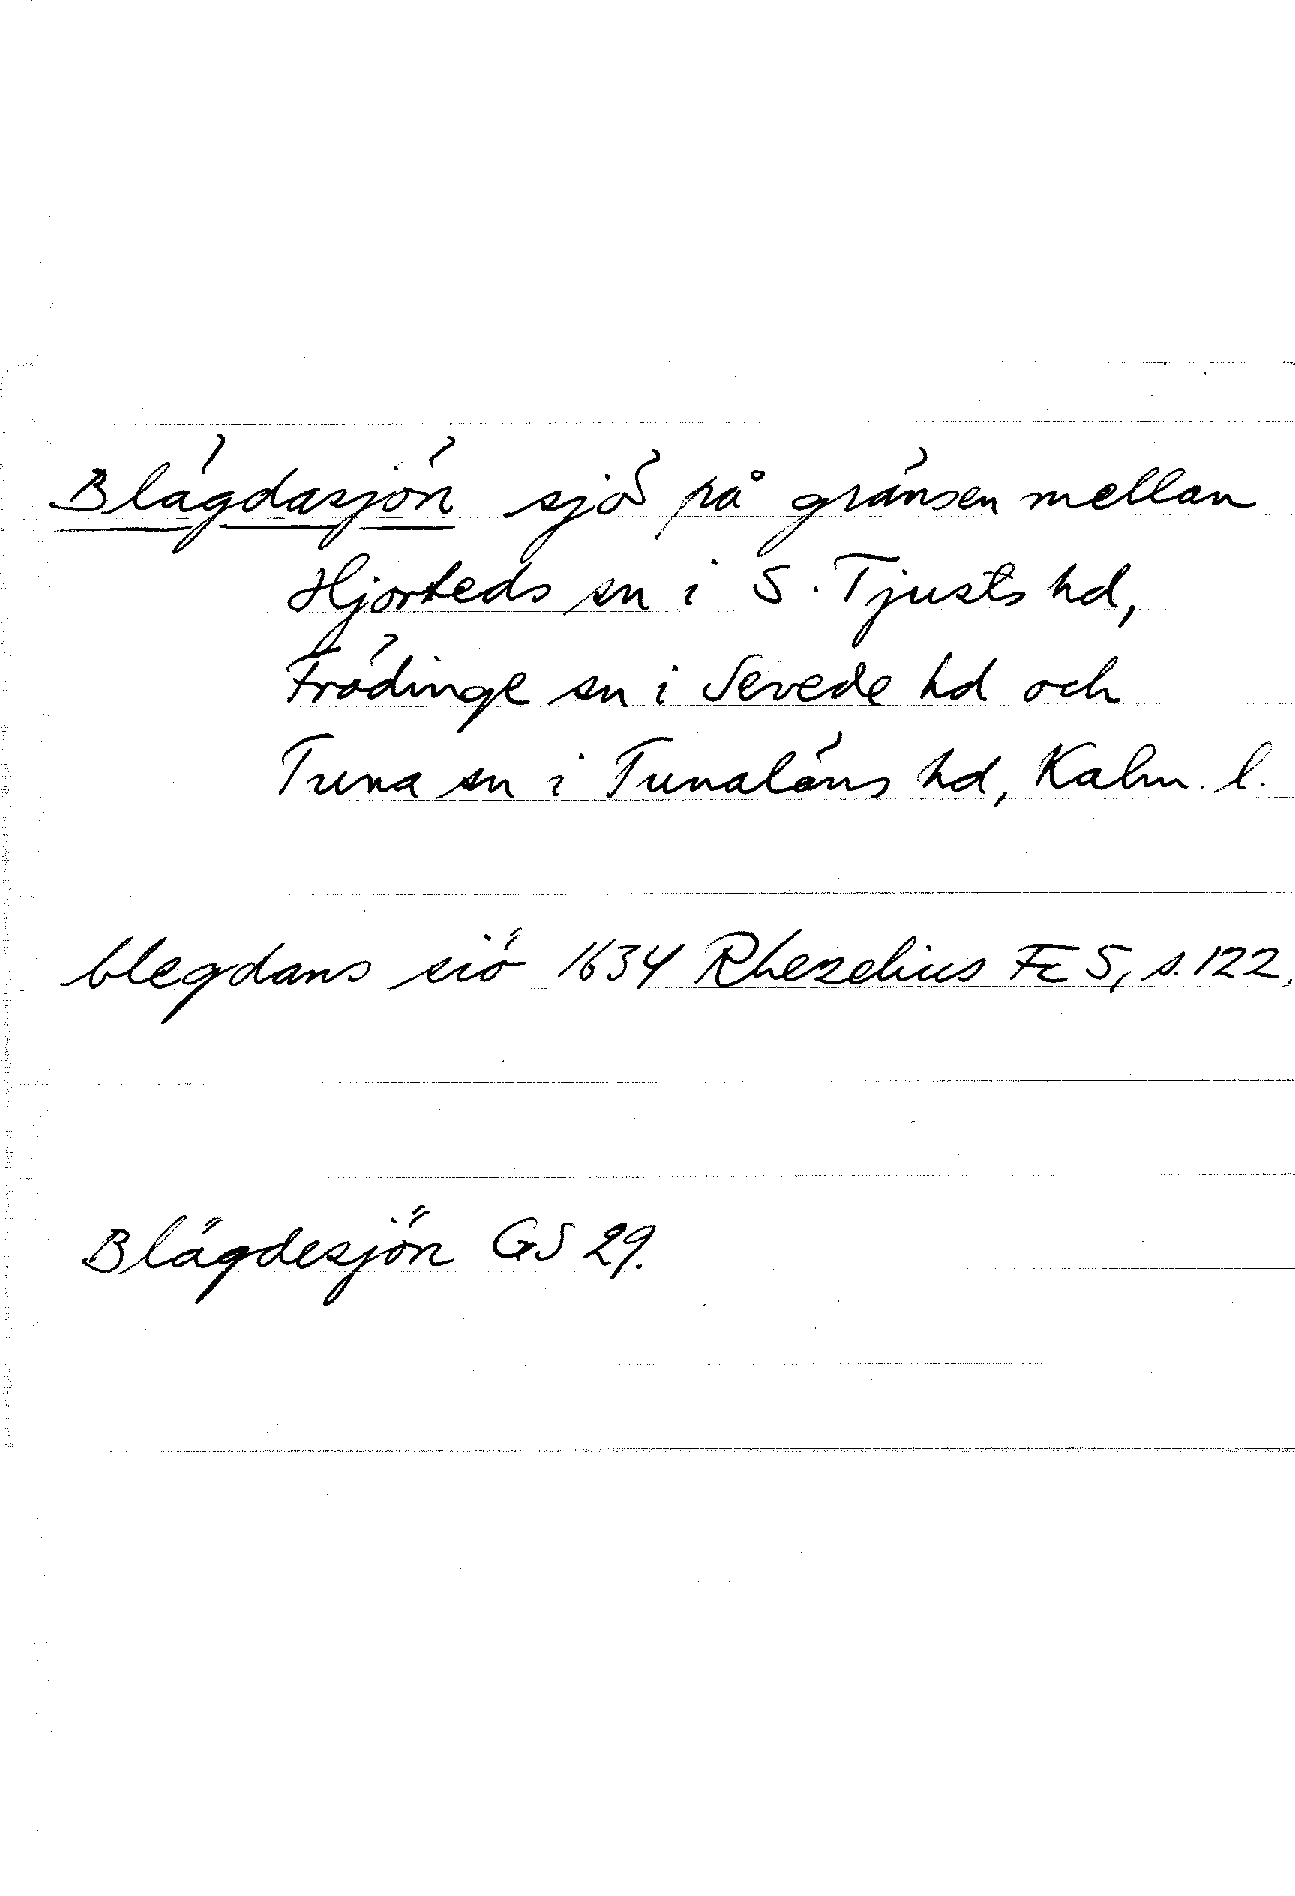 Blägdasjön sjö på gränsen mellan
Hjorteds sn i S. Tjusts hd,
Frödinge sn i Sevede hd och
Tuna sn i Tunaläns hd, Kalm. l.
blegdans siö 1634 Rhezelius Fc 5, s. 122.
Blägdesjön GS 29.